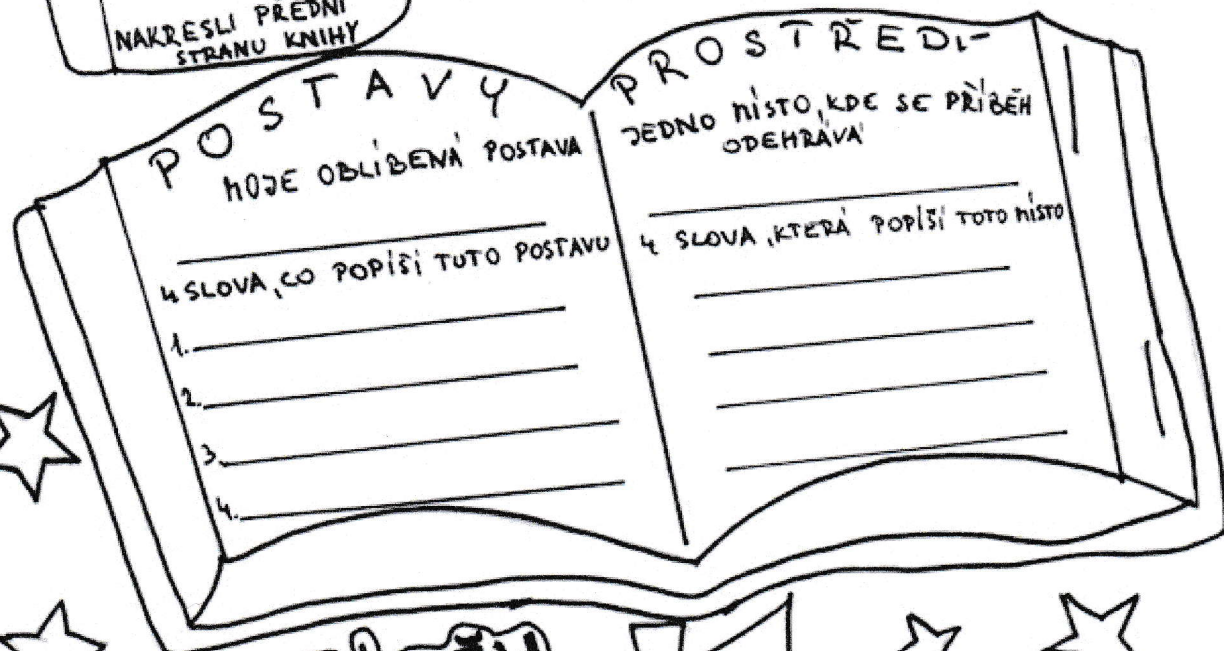 NAKRESLI PŘEDNÍ
STRANU KNIHY
POSTAVY
MOJE OBLÍBENÁ POSTAVA
4 SLOVA, CO POPÍŠÍ TUTO POSTAVU
1.
2.
3.
4.
PROSTŘEDÍ
JEDNO MÍSTO, KDE SE PŘÍBĚH
ODEHRÁVÁ
4 SLOVA, KTERÁ POPÍŠÍ TOTO MÍSTO